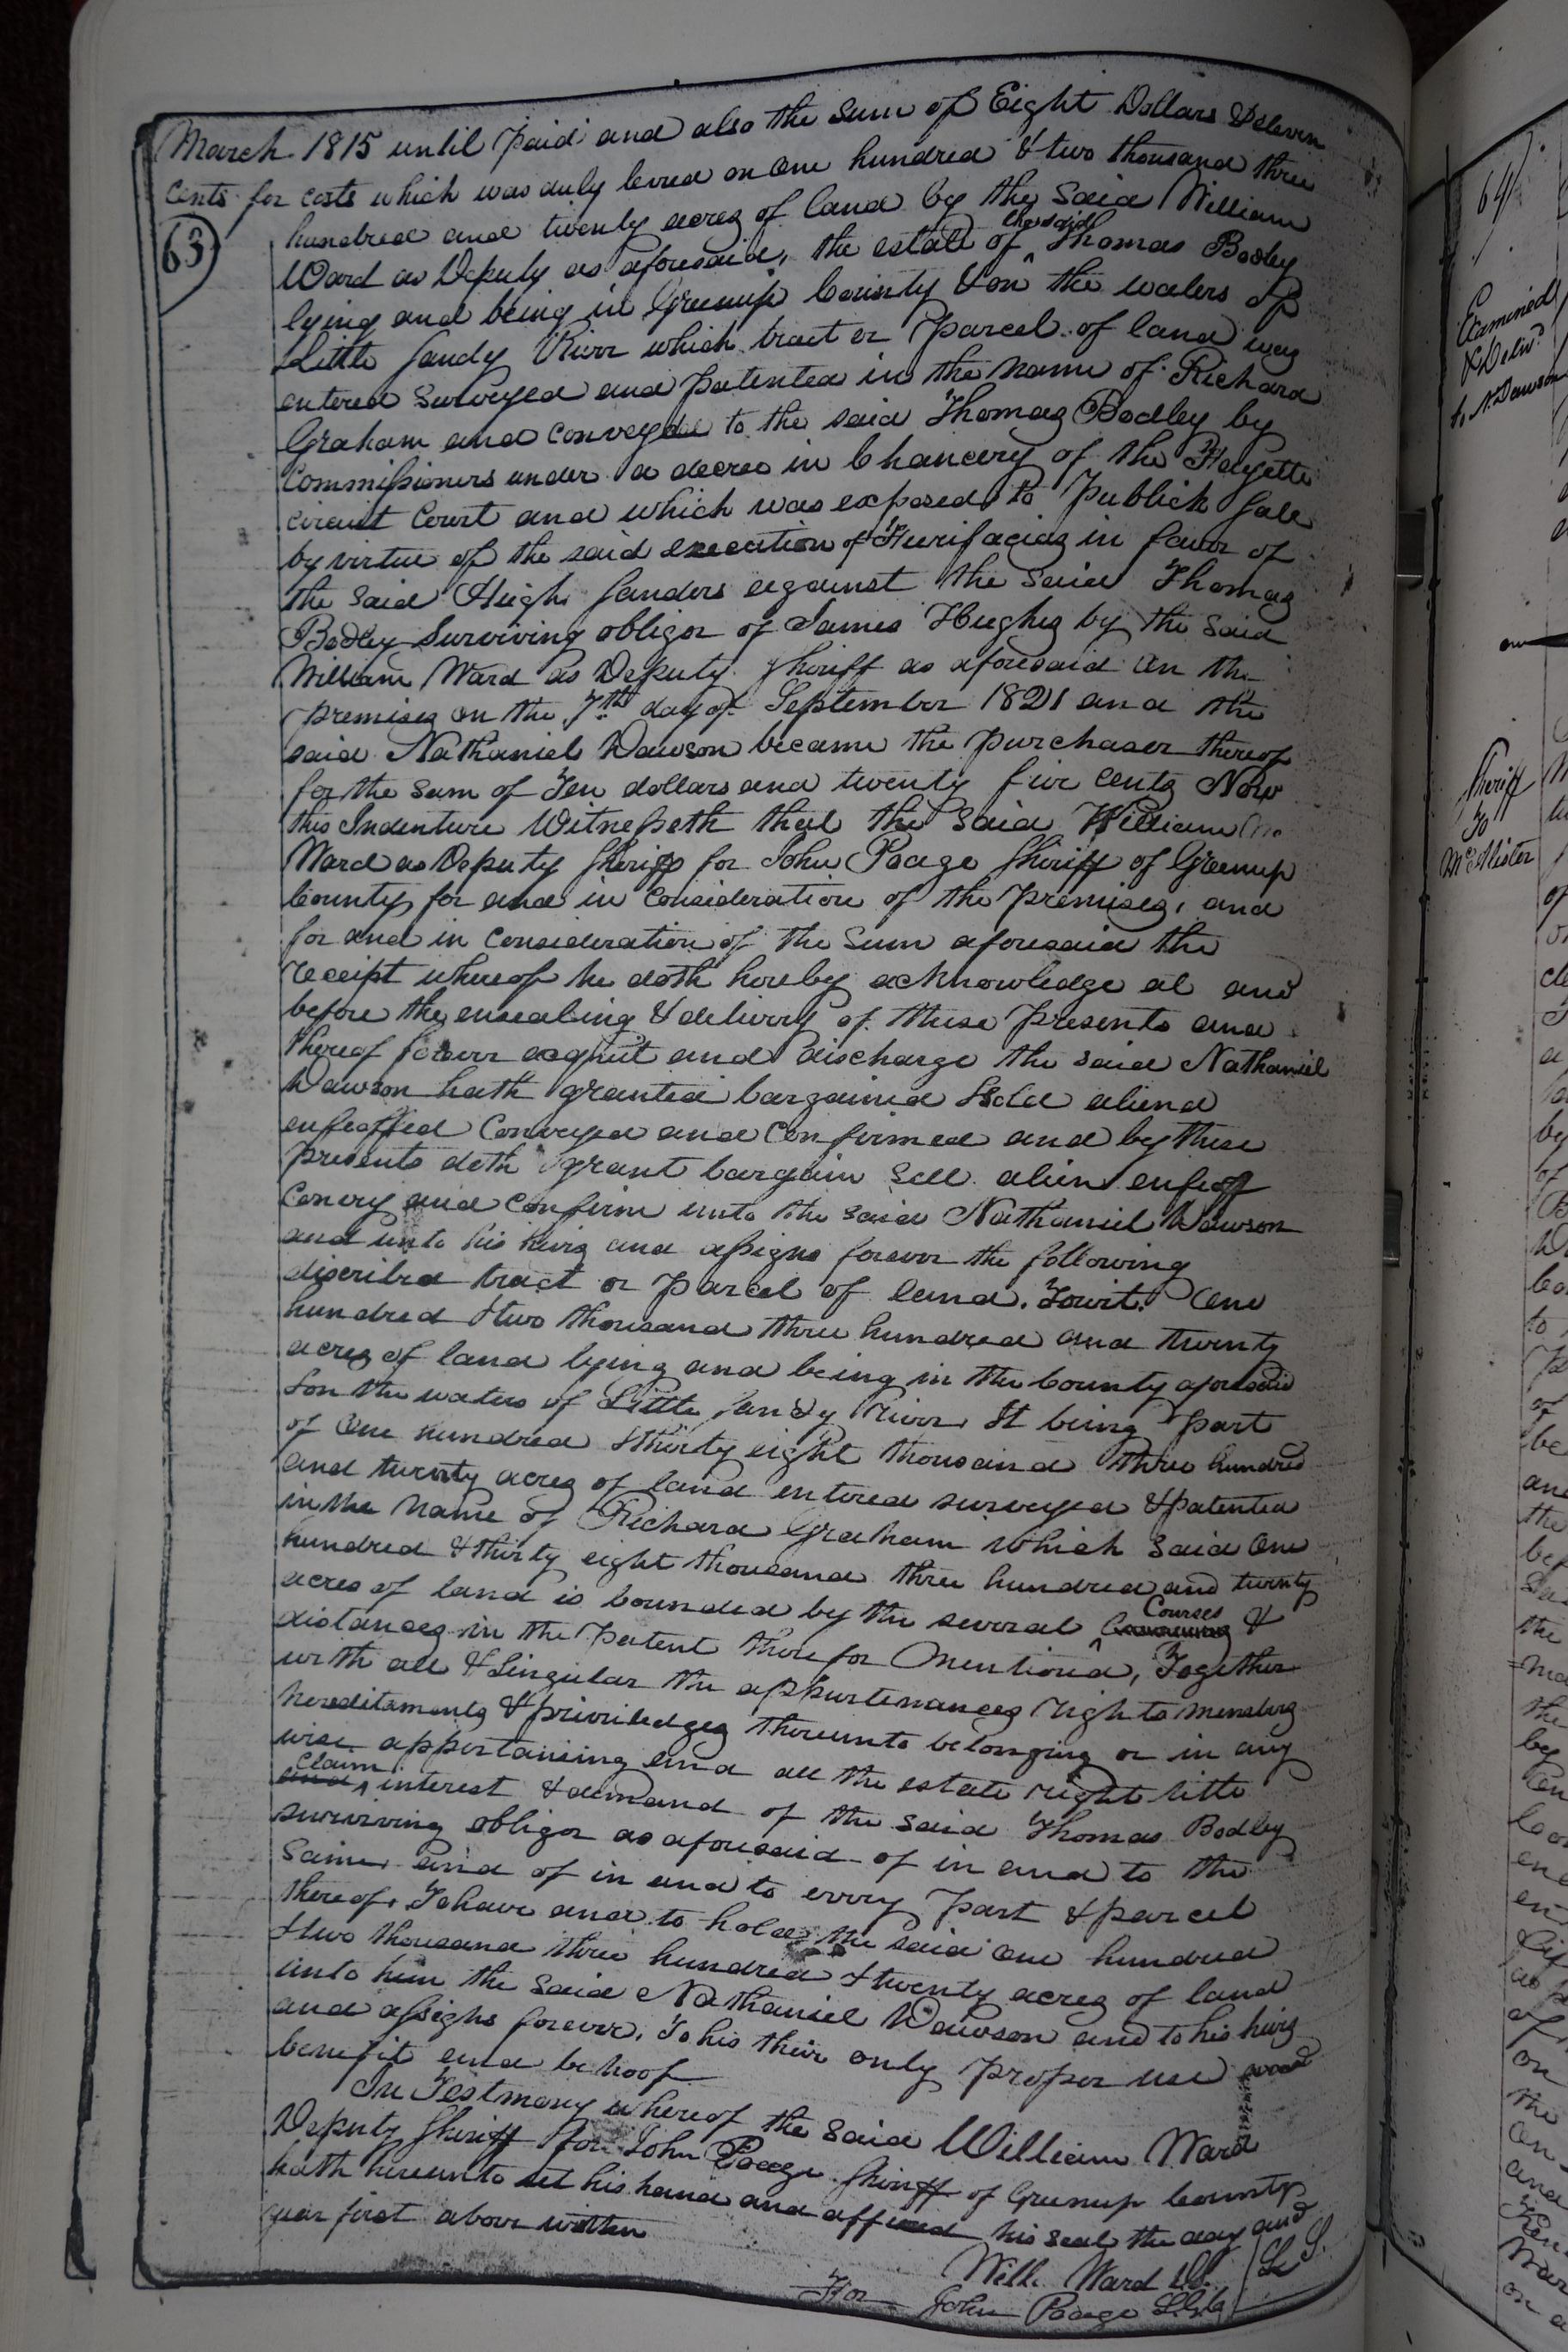 March 1815 until paid and also the Sum of Eight Dollars & Eleven
Cents for costs which was duly levied on One hundred & two thousand three
63
hundred and twenty acres of land by the Said William
Ward as Deputy as aforesaid, the estate of the said Thomas Bodley
lying and being in Greenup County & on the waters of
Little Sandy River which tract or parcel of land was
entered Surveyed and patented in the name of Richard
Graham and conveyed to the said Thomas Bodley by
Commissioners under a decree in Chancery of the Fayette
circuit Court and which was exposed to Publick Sale
by virtue of the said execution of Fierifacias in favor of
the Said Hugh Sanders against the Said Thomas
Bodley Surviving obligor of James Hughes by the Said
William Ward as Deputy Sheriff as aforesaid on the
premises on the 7th day of September 1821 and the
said Nathaniel Dawson became the purchaser thereof
for the Sum of Ten dollars and twenty five cents Now
this Indenture Witnesseth that the Said William
Ward as Deputy Sheriff for John Poage Sheriff of Greenup
County for and in Consideration of the Premises, and
for and in Consideration of the Sum aforesaid the
receipt whereof he doth hereby acknowledge at and
before the ensealing & delivery of these Presents and
thereof forever acquit and discharge the said Nathaniel
Dawson hath granted bargained Sold aliend
enfeoffed Conveyed and Confirmed and by these
presents doth grant bargain Sell alien enfeoff
Convey and Confirm unto the said Nathaniel Dawson
and unto his heirs and assigns forever the following
discribed tract or parcel of land. Towit. One
hundred & two thousand three hundred and twenty
acres of land lying and being in the County aforesaid
& on the waters of Little Sandy River It being part
of One hundred & thirty eight thousand three hundred
and twenty acres of land entered surveyed & patented
in the Name of Richard Graham which Said One
hundred & thirty eight thousand three hundred and twenty
acres of land is bounded by the several Courses &
distances in the Patent therefor Mentioned, Together
with all & Singular the appurtenances rights members
hereditaments & priviledges thereunto belonging or in any
wise appertaining and all the estate right title
and Claim interest & demand of the said Thomas Bodley
surviving obligor as aforesaid of in and to the
Same and of in and to every part & parcel
thereof. To have and to hold the said One hundred
& two thousand three hundred & twenty acres of land
unto him the Said Nathaniel Dawson and to his heirs
and assigns forever. To his their only proper use
benefit and behoof
In Testmony whereof the Said William Ward
Deputy Sheriff for John Poage Sheriff of Greenup County
hath hereunto set his hand and affixed his seal the day and
year first above written
Will. Ward D.S. L S.
For John Poage
64
Examined
& Deliv.d
to N. Dawson
Sheriff
To
McAllister